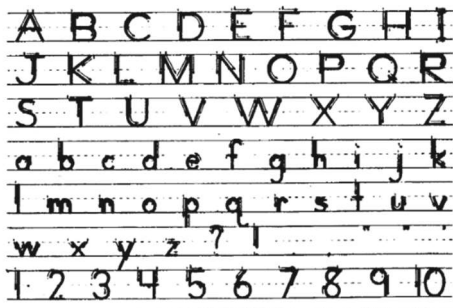 A B C D E F G H I
J K L M N O P Q R
S T U V W X Y Z
a b c d e f g h i j k
l m n o p q r s t u v
w x y z ? ! . " " '
1 2 3 4 5 6 7 8 9 10